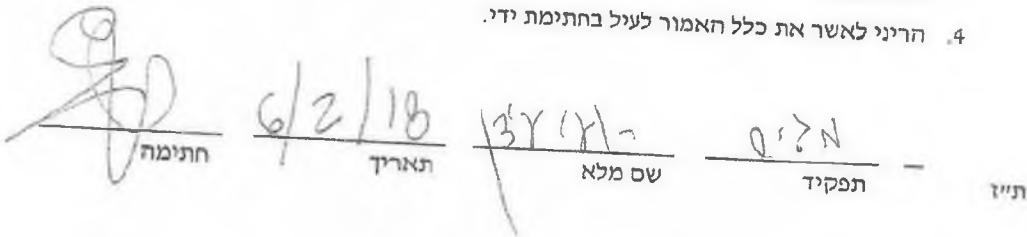 4. הריני לאשר את כלל האמור לעיל בחתימת ידי.
6/2/18
ת"ז תפקיד שם מלא תאריך חתימה